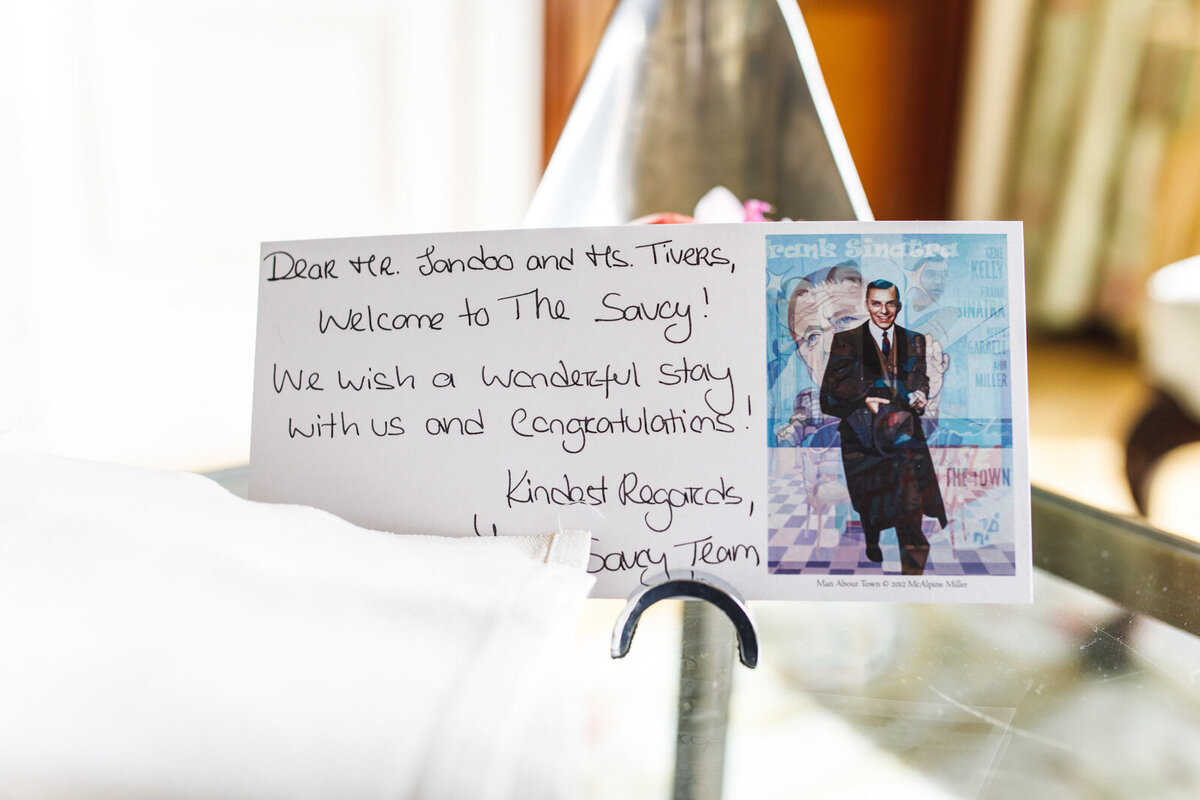 Dear Mr. Jandoo and Ms. Tivers,
Welcome to The Savoy!
We wish a wonderful stay
with us and Congratulations!
Kindest Regards,
Savoy Team
rank Sinatra
GENE
KELLY
FRANK
SINATRA
BETTY
GARRETT
ANN
MILLER
THE TOWN
Man About Town © 2012 McAlpine Miller